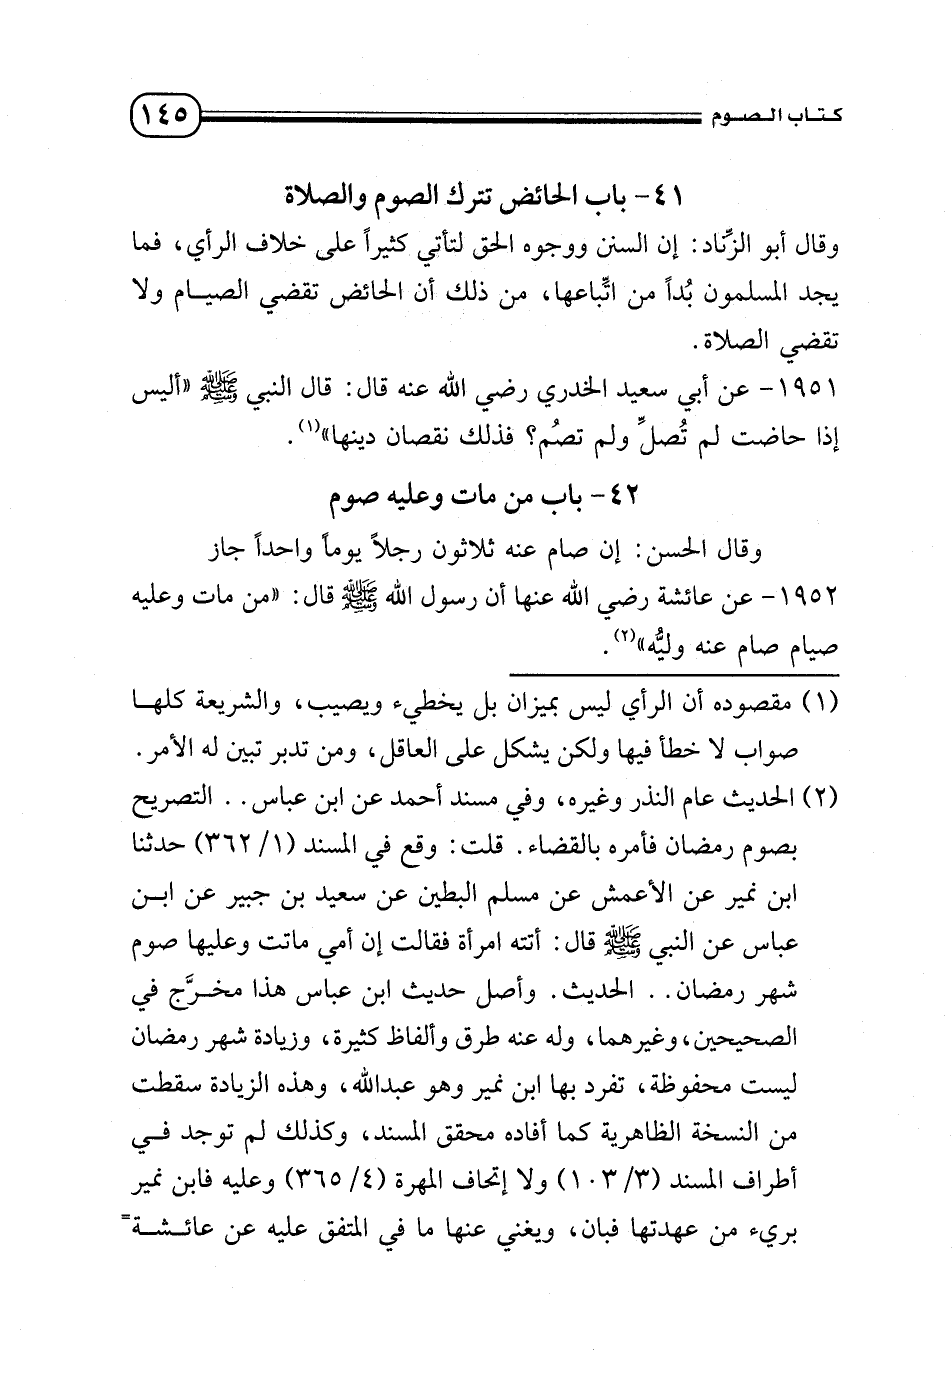 كتاب الصوم ١٤٥
٤١- باب الحائض تترك الصوم والصلاة
وقال أبو الزِّناد: إن السنن ووجوه الحق لتأتي كثيراً على خلاف الرأي، فما
يجد المسلمون بُداً من اتِّباعها، من ذلك أن الحائض تقضي الصيام ولا
تقضي الصلاة.
١٩٥١- عن أبي سعيد الخدري رضي الله عنه قال: قال النبي ﷺ «أليس
إذا حاضت لم تُصلِّ ولم تصُم؟ فذلك نقصان دينها»(١).
٤٢- باب من مات وعليه صوم
وقال الحسن: إن صام عنه ثلاثون رجلاً يوماً واحداً جاز
١٩٥٢- عن عائشة رضي الله عنها أن رسول الله ﷺ قال: «من مات وعليه
صيام صام عنه وليُّه»(٢).
(١) مقصوده أن الرأي ليس بميزان بل يخطيء ويصيب، والشريعة كلها
صواب لا خطأ فيها ولكن يشكل على العاقل، ومن تدبر تبين له الأمر.
(٢) الحديث عام النذر وغيره، وفي مسند أحمد عن ابن عباس.. التصريح
بصوم رمضان فأمره بالقضاء. قلت: وقع في المسند (١/ ٣٦٢) حدثنا
ابن نمير عن الأعمش عن مسلم البطين عن سعيد بن جبير عن ابن
عباس عن النبي ﷺ قال: أتته امرأة فقالت إن أمي ماتت وعليها صوم
شهر رمضان.. الحديث. وأصل حديث ابن عباس هذا مخرَّج في
الصحيحين، وغيرهما، وله عنه طرق وألفاظ كثيرة، وزيادة شهر رمضان
ليست محفوظة، تفرد بها ابن نمير وهو عبدالله، وهذه الزيادة سقطت
من النسخة الظاهرية كما أفاده محقق المسند، وكذلك لم توجد في
أطراف المسند (٣/ ١٠٣) ولا إتحاف المهرة (٤/ ٣٦٥) وعليه فابن نمير
بريء من عهدتها فبان، ويغني عنها ما في المتفق عليه عن عائشة=